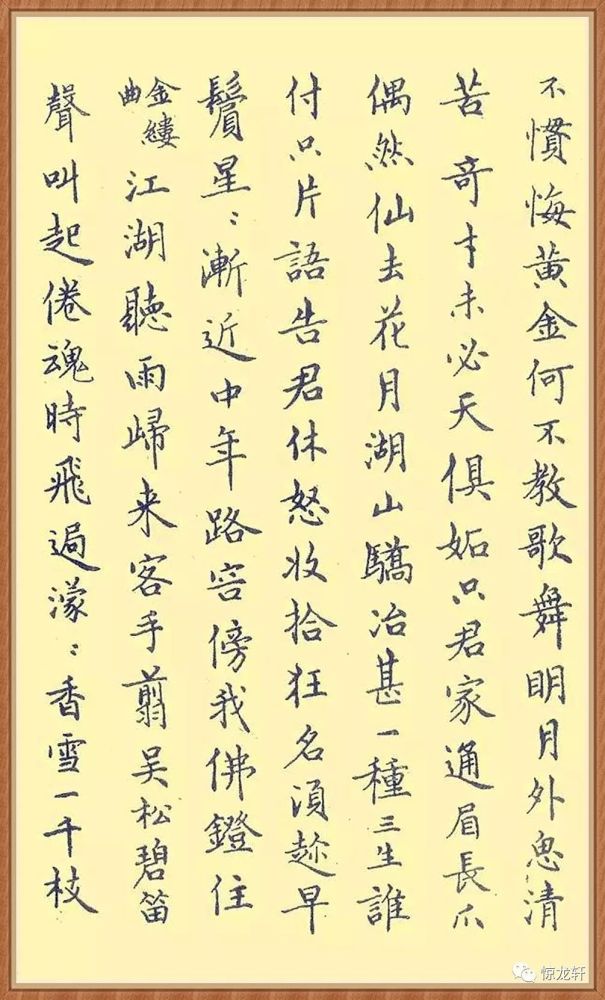 不慣悔黃金何不教歌舞明月外思清
苦奇才未必天俱妬只君家通眉長爪
偶然仙去花月湖山驕冶甚一種三生誰
付只片語告君休怒收拾狂名須趁早
鬢星:漸近中年路容傍我佛鐙住
金縷曲江湖聽雨歸来客手翦吳松碧笛
聲叫起倦魂時飛過濛:香雪一千枝
惊龙轩